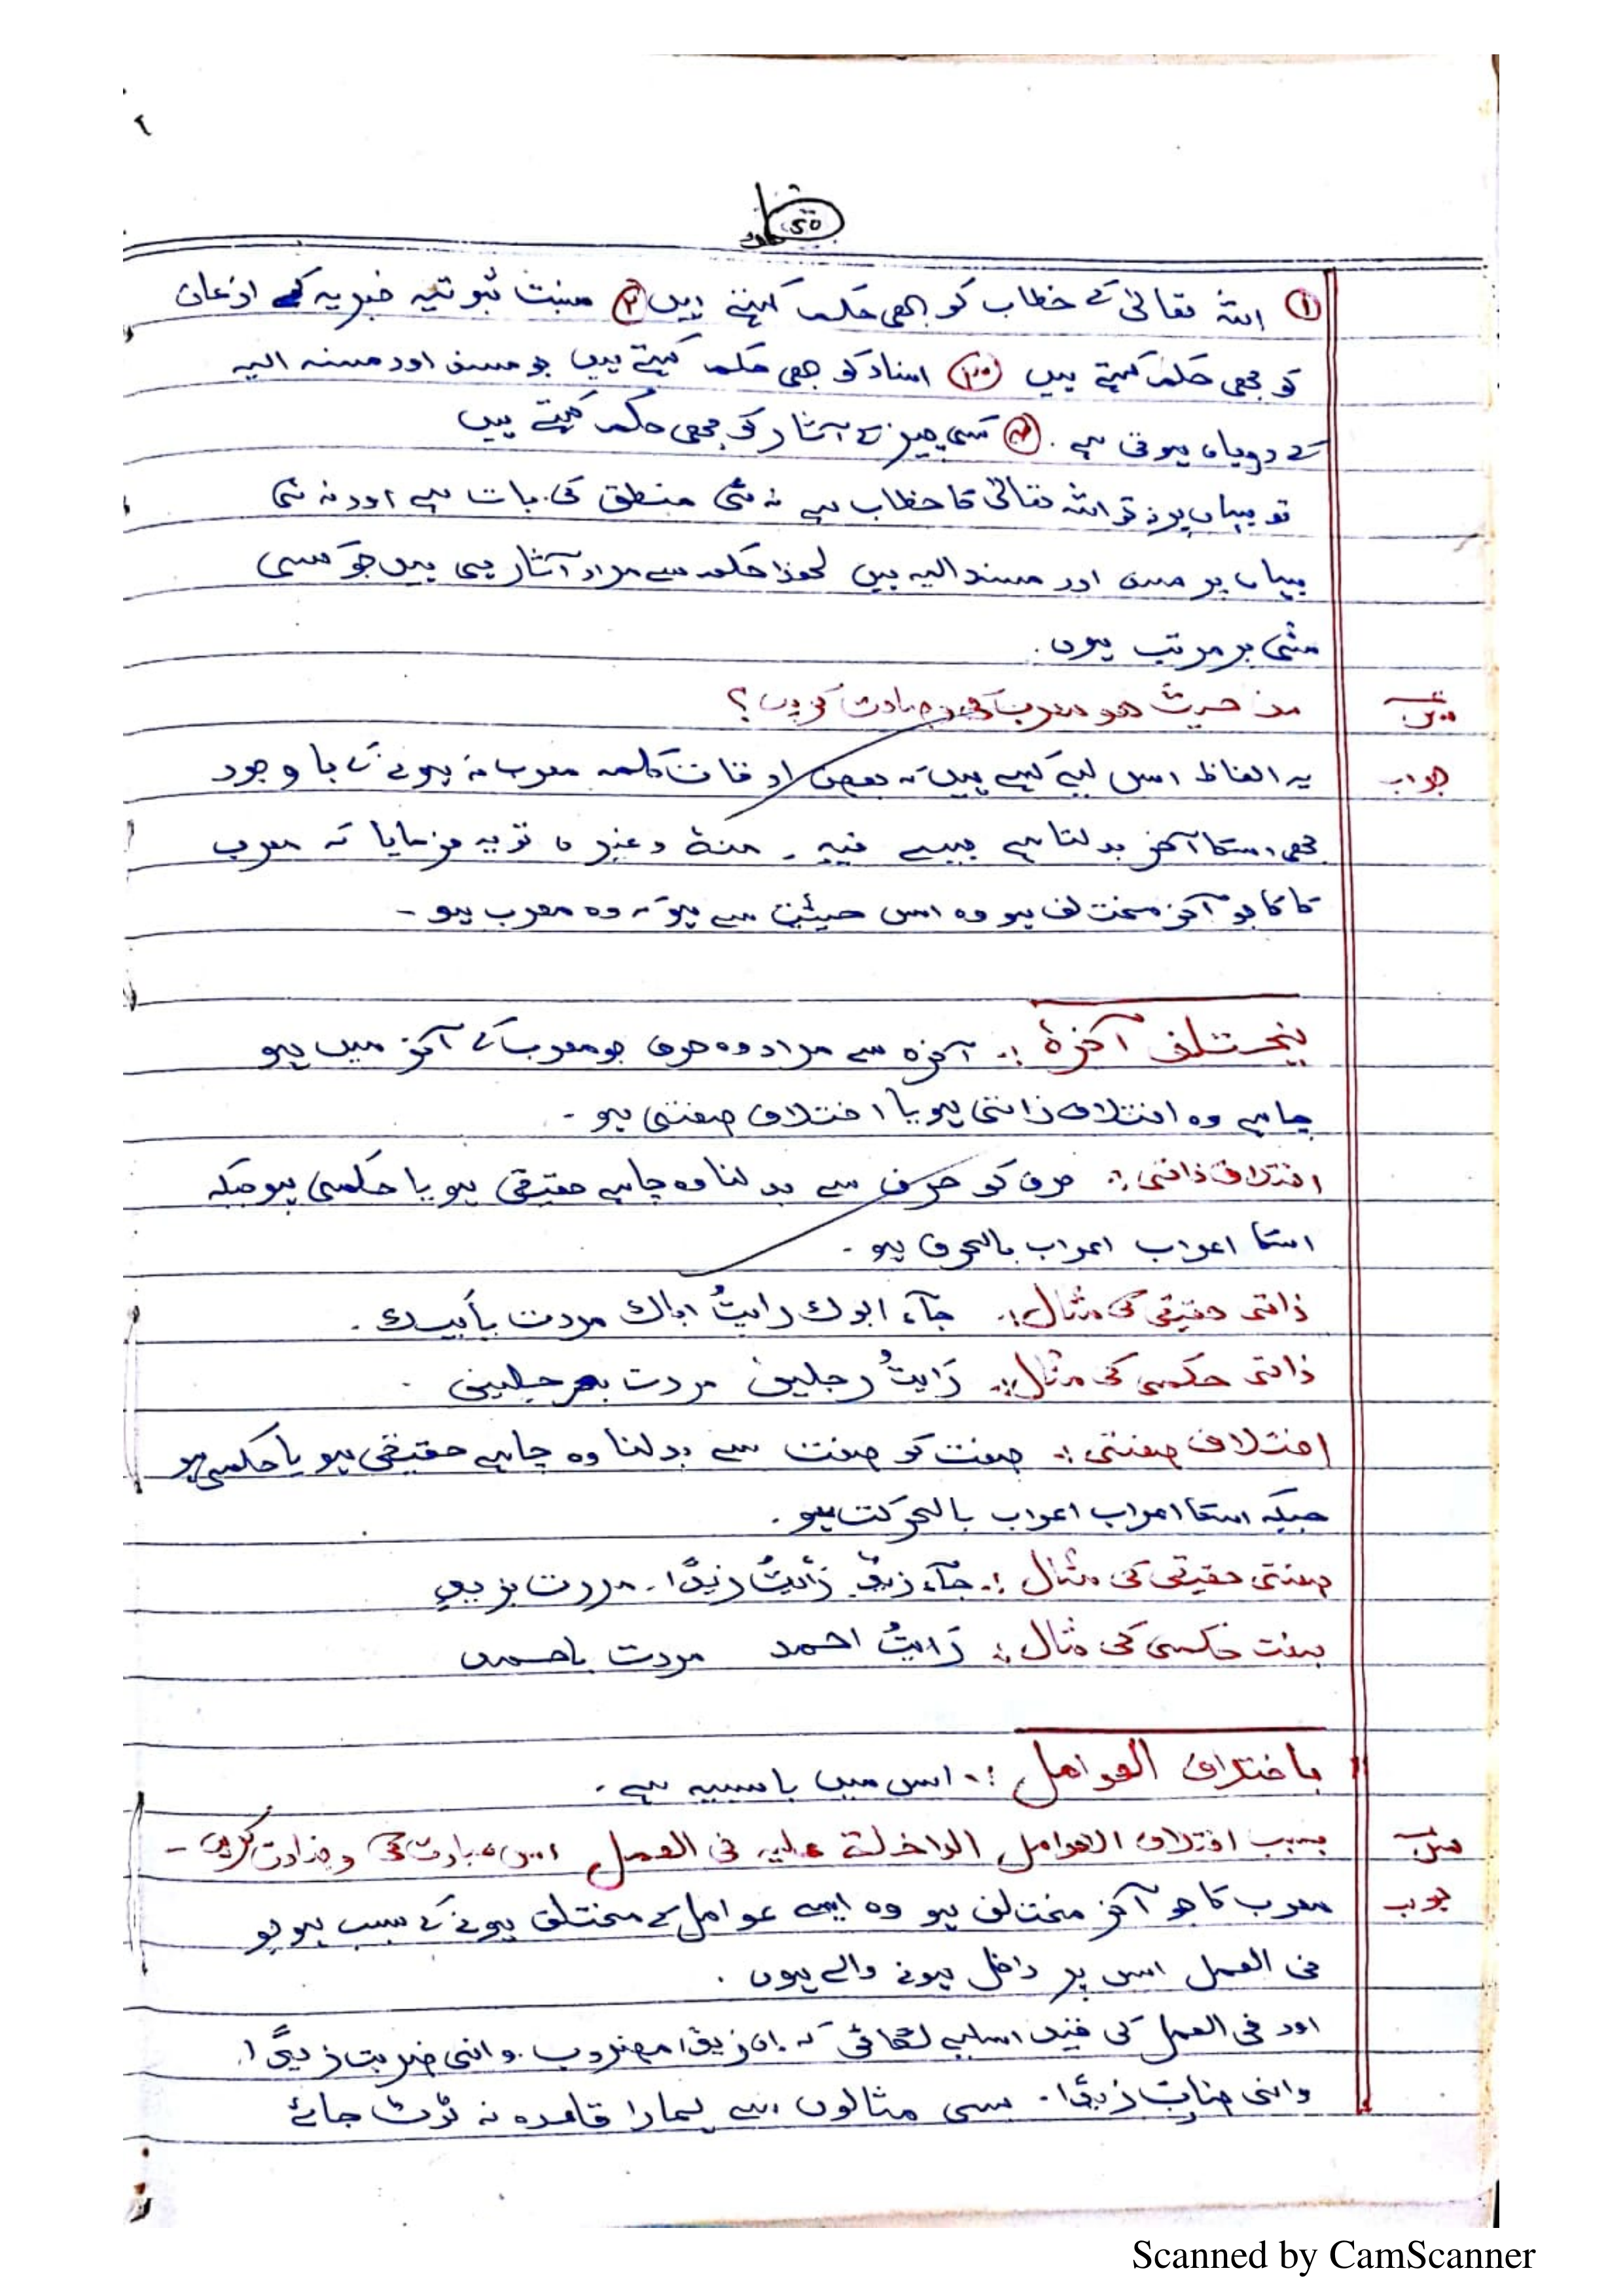 ٢
① اللہ تعالیٰ کے خطاب کو بھی حکم کہتے ہیں ② نسبت ثبوتیہ خبریہ کے اذعان
کو بھی حکم کہتے ہیں ③ اسناد کو بھی حکم کہتے ہیں جو مسند اور مسند الیہ
کے درمیاں ہوتی ہے . ④ کسی چیز کے آثار کو بھی حکم کہتے ہیں
تو یہاں پر نہ تو اللہ تعالیٰ کا خطاب ہے نہ ہی منطق کی بات ہے اور نہ ہی
یہاں پر مسند اور مسند الیہ ہیں لھذا حکم سے مراد آثار ہی ہیں جو کسی
شئی پر مرتب ہوں .
من حیث ھو معرب کی وضاحت کریں ؟
جواب یہ الفاظ اس لیے کہے ہیں کہ بعض اوقات کلمہ معرب نہ ہونے کے باوجود
بھی اسکا آخر بدلتا ہے جیسے منہ وغیرہ تو یہ فرمایا کہ معرب
کا جو آخر مختلف ہو وہ اس حیثیت سے ہو کہ وہ معرب ہو -
یختلف آخرہٗ :. آخرہ سے مراد وہ حرف جو معرب کے آخر میں ہو
چاہے وہ اختلاف ذاتی ہو یا اختلاف صفتی ہو -
اختلاف ذاتی :. حرف کو حرف سے بدلنا وہ چاہے حقیقی ہو یا حکمی ہو جبکہ
اسکا اعراب اعراب بالحرف ہو .
ذاتی حقیقی کی مثال :. جآء ابوك رایتُ اباك مررت بأبیك .
ذاتی حکمی کی مثال :. رَایتُ رجلین مررت برجلین .
اختلاف صفتی :. صفت کو صفت سے بدلنا وہ چاہے حقیقی ہو یا حکمی ہو
جبکہ اسکا اعراب اعراب بالحرکت ہو .
صفتی حقیقی کی مثال :. جآء زیدٌ رَأیتُ زیدًا . مررت بزیدٍ
صفت حکمی کی مثال :. رَایتُ احمد مررت باحمد
باختلاف العوامل :. اس میں با سببیہ ہے .
بسبب اختلاف العوامل الداخلة علیہ فی العمل اس عبارت کی وضاحت کریں -
جواب معرب کا جو آخر مختلف ہو وہ ایسے عوامل کے مختلف ہونے کے سبب ہو جو
فی العمل اس پر داخل ہونے والے ہوں .
اور فی العمل کی قید اسلیے لگائی کہ ان زیدًا مضروب . وانی ضربت زیدًا .
وانی ضارب زیدًا . سی مثالوں سے ہمارا قاعدہ نہ ٹوٹ جائے
Scanned by CamScanner